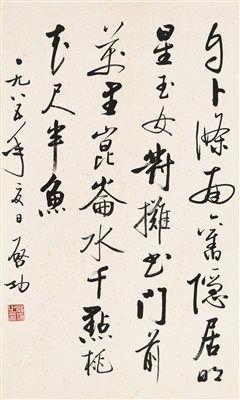 自卜條南舊隱居明
星玉女對攤書門前
萬里崑崙水千點桃
花尺半魚
一九八五年夏日 啓功